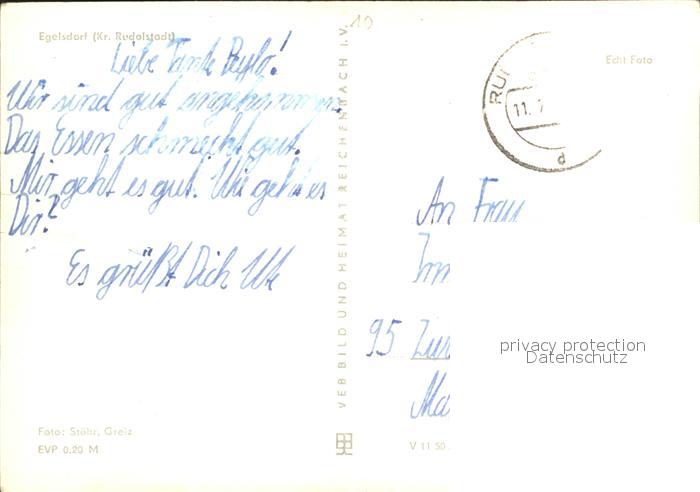 Egelsdorf (Kr. Rudolstadt)
Liebe Tante
Wir sind gut angekommen.
Das Essen schmeckt gut.
Mir geht es gut. Wie geht es
Dir?
Es grüßt Dich Ute
Foto: Stöhr, Greiz
EVP 0,20 M
VEB BILD UND HEIMAT REICHENBACH I. V.
10
Echt Foto
RU
11.
d
An Frau
95
Ma
V 11 50
privacy protection
Datenschutz